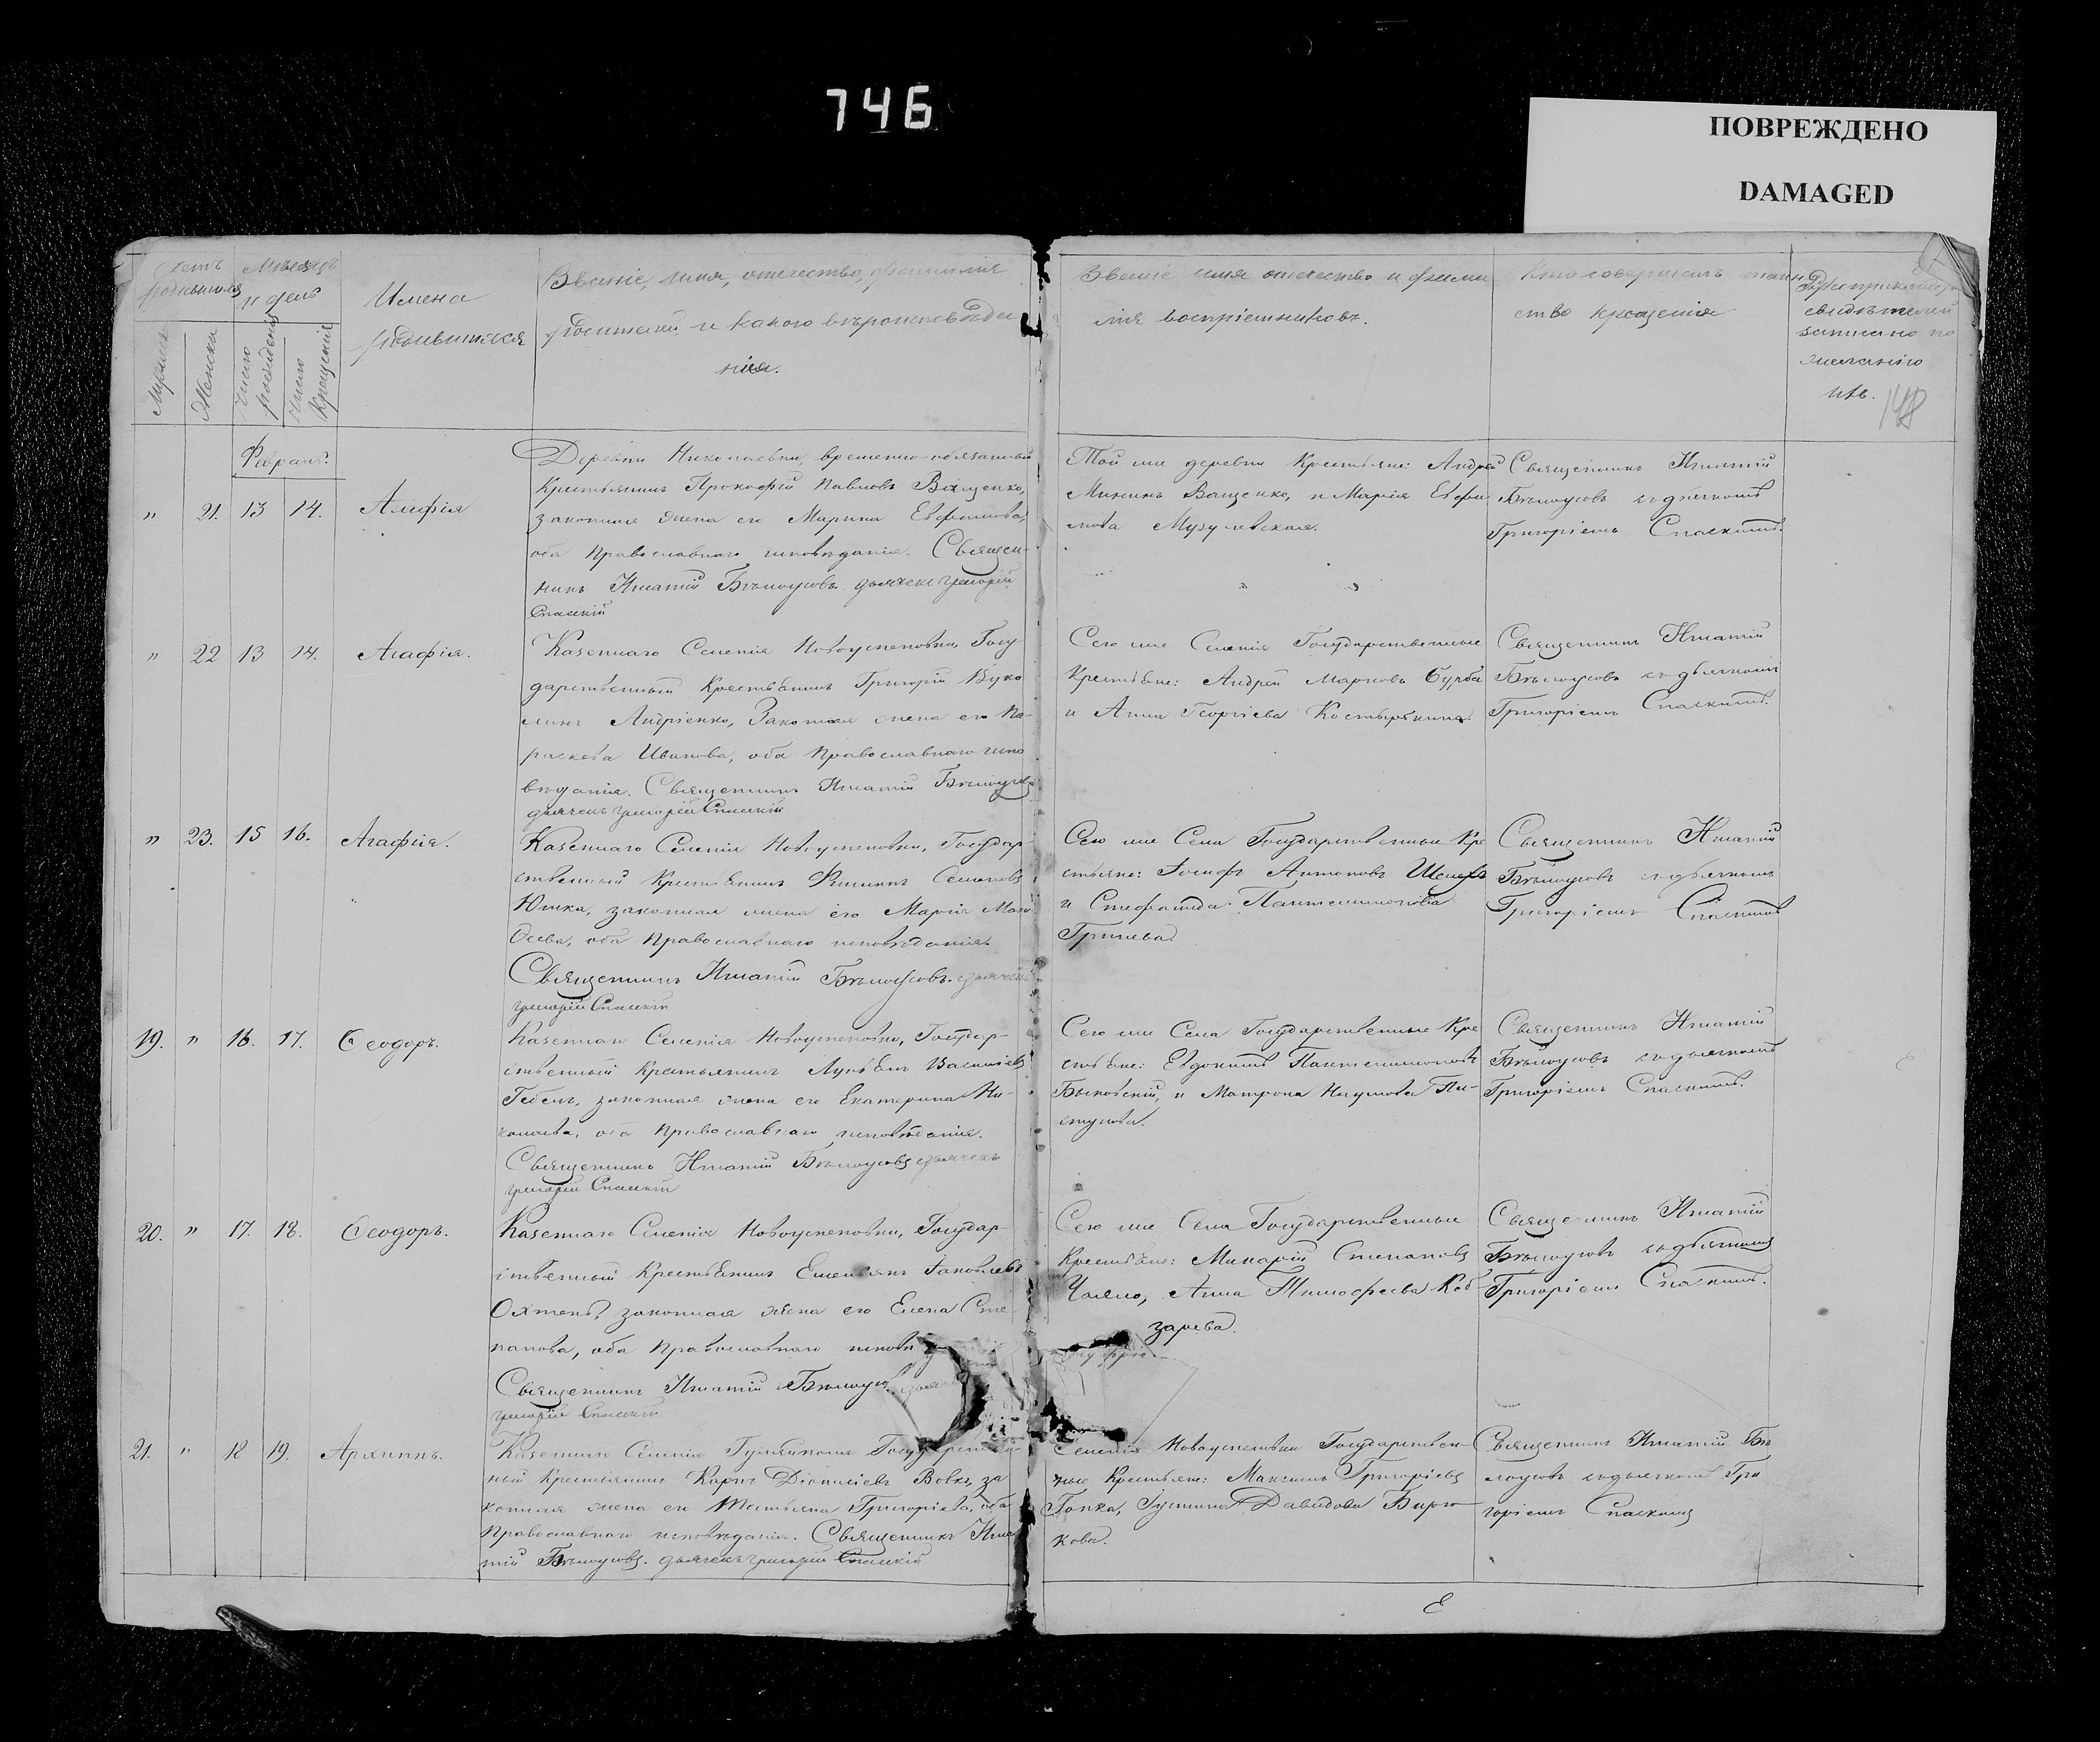 746
ПОВРЕЖДЕНО
DAMAGED
Счетъ родившихся
Мѣсяцъ и день
Мужеска
Женска
Число рожденія
Число Крещенія
Имена
родившихся
Званіе, имя, отчество, фамилія
родителей, и какого вѣроисповѣда
нія.
Званіе имя отчество и фами
лія воспріемниковъ.
Кто совершилъ таин
ство крещенія
свидѣтелей
записано по
желанію
ихъ.
148
Февраль.
" 21. 13 14.
Агафія
Деревни Николаевки, временно-обязанный
Крестьянинъ Прокофій Павловъ Ващенко,
законная жена его Марина Евфимова,
оба Православнаго исповѣданія. Священ-
никъ Игнатій Бѣлоусовъ. дьячекъ григорій
Спасскій
Той же деревни Крестьяне: Андрей
Мининъ Ващенко, и Марія Евфи
мова
Священникъ Игнатій
Бѣлоусовъ съ дьячкомъ
Григоріемъ Спаскимъ.
" 22 13 14.
Агафія.
Казеннаго Селенія Новоуспеновки, Госу-
дарственный Крестьянинъ Григорій Вуко
ловъ Андріенко, Законная жена его Па-
раскева Иванова, оба Православнаго испо
вѣданія. Священникъ Игнатій Бѣлоусовъ
дьячекъ григорій Спасскій
Сего же Селенія Государственные
Крестьяне: Андрей Марковъ Бурба
и Анна Георгіева
Священникъ Игнатій
Бѣлоусовъ съ дьячкомъ
Григоріемъ Спаскимъ.
" 23. 15 16.
Агафія.
Казеннаго Селенія Новоуспеновки, Государ-
ственный Крестьянинъ Филиппъ Семеновъ
Юшка, законная жена его Марія
оба Православнаго исповѣданія.
Священникъ Игнатій Бѣлоусовъ. дьячекъ
григорій Спасскій
Сего же Села Государственные Кре
стьяне: Іосифъ Антоновъ
и Стефанида Пантелимонова
Гринева.
Священникъ Игнатій
Бѣлоусовъ съ дьячкомъ
Григоріемъ Спаскимъ
19. " 16. 17.
Ѳеодоръ.
Казеннаго Селенія Новоуспеновки, Государ-
ственный Крестьянинъ Лукьянъ Василіевъ
законная жена его Екатерина Ни-
колаева, оба Православнаго исповѣданія.
Священникъ Игнатій Бѣлоусовъ дьячекъ
григорій Спасскій
Сего же Села Государственные Кре
стьяне: Евдокимъ Пантелимоновъ
Быковскій, и Матрона Наумова Пи-
стунова.
Священникъ Игнатій
Бѣлоусовъ съ дьячкомъ
Григоріемъ Спаскимъ.
20. " 17. 18.
Ѳеодоръ.
Казеннаго Селенія Новоуспеновки, Государ-
ственный Крестьянинъ Емельянъ Іаковлевъ
законная жена его Елена Сте-
панова, оба Православнаго исповѣ
Священникъ Игнатій Бѣлоусов
григорій Спасскій
Сего же Села Государственные
Крестьяне: Макарій Степановъ
Чаленко, Анна Тимофеева Коб
зарева.
Священникъ Игнатій
Бѣлоусовъ съ дьячкомъ
Григоріемъ Спаскимъ.
21. " 18 19.
Архиппъ.
Казеннаго Селенія Гуляйполя Государствен-
ный Крестьянинъ Карпъ Діонисіевъ Вовкъ, за
конная жена его Татьяна Григоріева, оба
Православнаго исповѣданія. Священникъ Игна
тій Бѣлоусовъ. дьячекъ григорій Спасскій
Селенія Новоуспеновки Государствен-
ные Крестьяне: Максимъ Григоріевъ
Гапка, Іустина Давидова Бирю
кова.
Священникъ Игнатій Бѣ
лоусовъ съ дьячкомъ Гри
горіемъ Спаскимъ